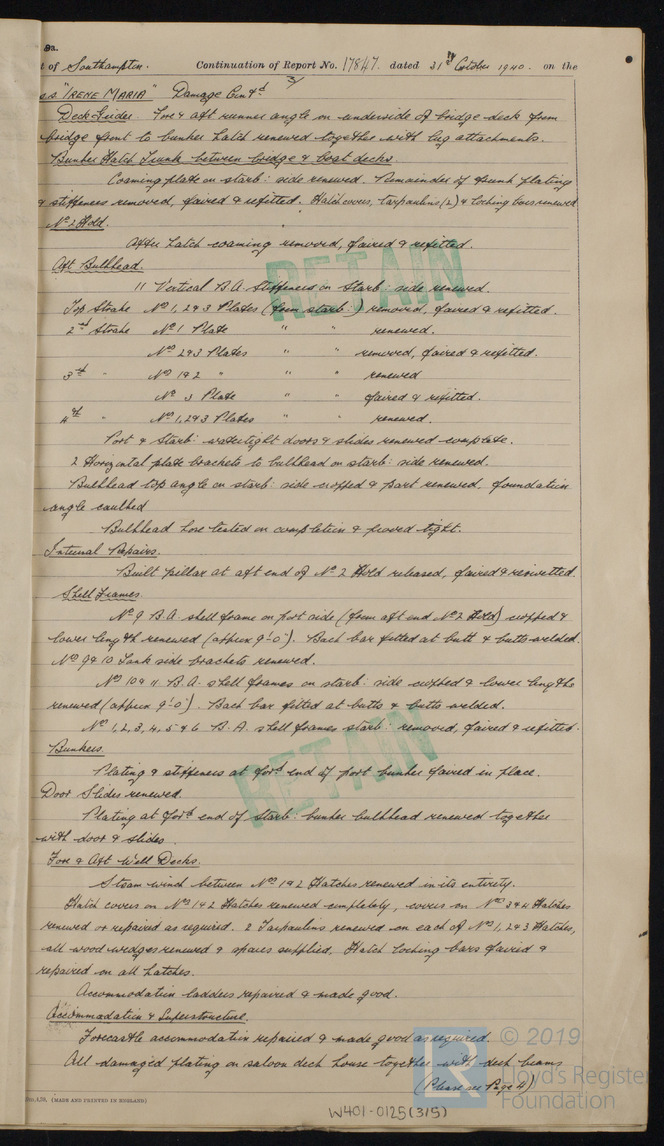 9a.
t of Southampton. Continuation of Report No. 17847. dated 31st October 1940. on the
3/
s.s. "IRENE MARIA" Damage Contd
Deck Girder. Fore & aft runner angle on underside of bridge deck from
bridge front to bunker hatch renewed together with lug attachments.
Bunker Hatch Trunk between bridge & boat decks.
Coaming plate on starb: side renewed. Remainder of trunk plating
& stiffeners removed, faired & refitted. Hatch covers, tarpaulins (2) & locking bars renewed
No 2 Hold.
After hatch coaming removed, faired & refitted.
Aft Bulkhead.
11 Vertical B.A. stiffeners on starb: side renewed.
Top Strake Nos 1, 2 & 3 Plates (from starb:) removed, faired & refitted.
2nd Strake No 1 Plate " " renewed.
Nos 2 & 3 Plates " " removed, faired & refitted.
3rd " Nos 1 & 2 " " " renewed
No 3 Plate " " faired & refitted.
4th " Nos 1, 2 & 3 Plates " " renewed.
Port & Starb: watertight doors & slides renewed complete.
2 Horizontal plate brackets to bulkhead on starb: side renewed.
Bulkhead top angle on starb: side cropped & part renewed, foundation
angle caulked
Bulkhead hose tested on completion & proved tight.
Internal Repairs.
Built pillar at aft end of No 2 Hold released, faired & rerivetted.
Shell Frames.
No 9 B.A. shell frame on port side (from aft end No 2 Hold) cropped &
lower length renewed (approx 9'-0"). Back bar fitted at butt & butts welded.
Nos 9 & 10 Tank side brackets renewed.
Nos 10 & 11 B.A. shell frames on starb: side cropped & lower lengths
renewed (approx 9'-0"). Back bar fitted at butts & butts welded.
Nos 1, 2, 3, 4, 5 & 6 B.A. shell frames starb: removed, faired & refitted.
Bunkers.
Plating & stiffeners at ford end of port bunker faired in place.
Door Slides renewed.
Plating at ford end of starb: bunker bulkhead renewed together
with door & slides.
Fore & Aft Well Decks.
Steam winch between Nos 1 & 2 Hatches renewed in its entirety.
Hatch covers on Nos 1 & 2 Hatches renewed completely, covers on Nos 3 & 4 Hatches
renewed or repaired as required. 2 Tarpaulins renewed on each of Nos 1, 2 & 3 Hatches,
all wood wedges renewed & spares supplied. Hatch locking bars faired &
repaired on all hatches.
Accommodation ladders repaired & made good.
Accommodation & Superstructure.
Forecastle accommodation repaired & made good as required.
All damaged plating on saloon deck house together with deck beams
(Please see Page 4)
(MADE AND PRINTED IN ENGLAND)
W401-0125(3/5)
RETAIN
RETAIN
© 2019
Lloyd's Register
Foundation